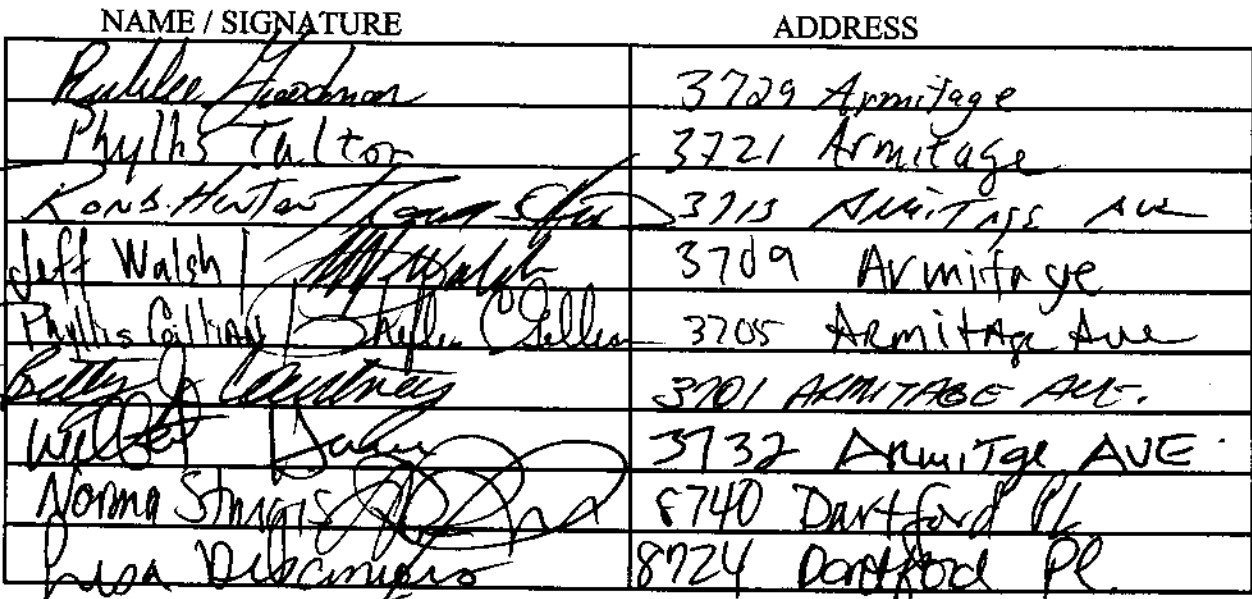 NAME / SIGNATURE ADDRESS
Goodman 3729 Armitage
Phyllis Talton 3721 Armitage
Ron S. Hunter 3713 Armitage Ave
Jeff Walsh / Walsh 3709 Armitage
Phyllis Gillian / 3705 Armitage Ave
Betty J Courtney 3701 ARMITAGE AVE.
Wilbert 3732 Armitge AVE
Norma Sturgis 8740 Dartford Pl
Lisa 8724 Dartford Pl.